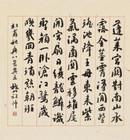 蓬萊宮闕對南山承
露金莖霄漢間西望
瑶池降王母東来紫
氣滿函關雲移雉尾
開宮扇日繞龍鱗識
聖顏一卧滄江驚歲
晚幾回青瑣點朝班
杜甫秋興八首其五